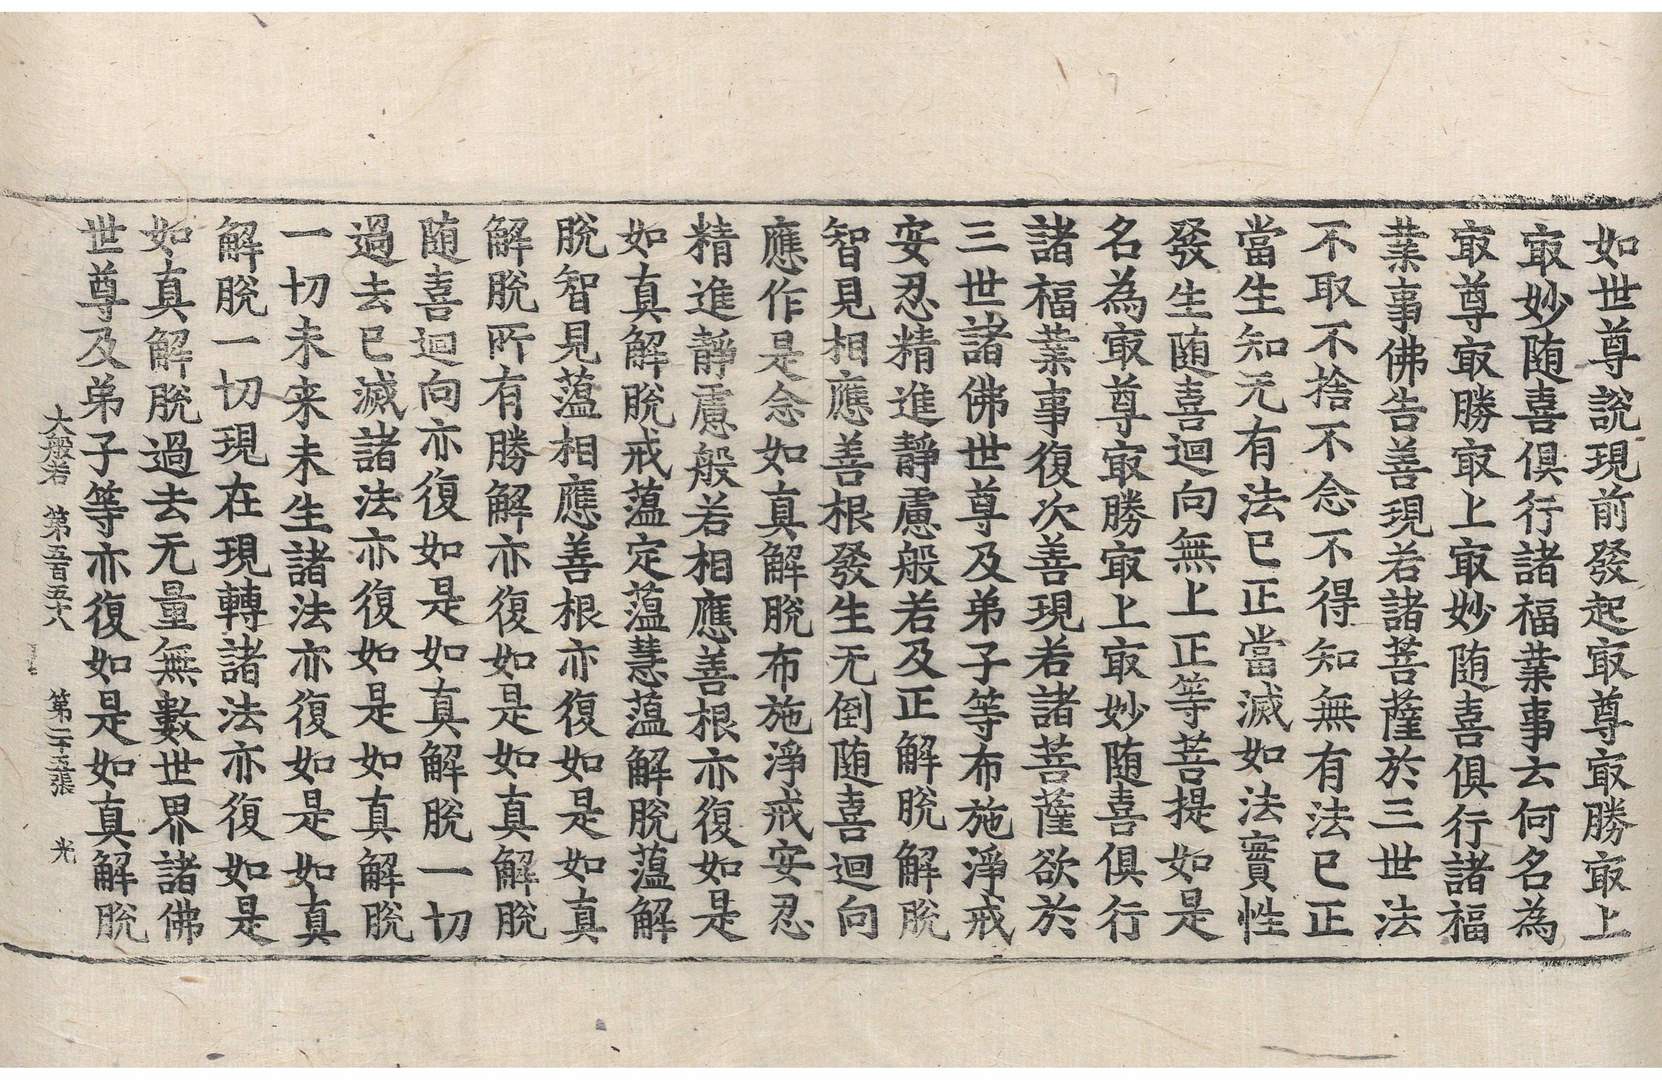 如世尊說現前發起㝡尊㝡勝㝡上
㝡妙随喜俱行諸福業事云何名為
㝡尊㝡勝㝡上㝡妙随喜俱行諸福
業事佛告善現若諸菩薩於三世法
不取不捨不念不得知無有法已正
當生知无有法已正當滅如法實性
發生随喜迴向無上正等菩提如是
名為㝡尊㝡勝㝡上㝡妙随喜俱行
諸福業事復次善現若諸菩薩欲於
三世諸佛世尊及弟子等布施淨戒
安忍精進靜慮般若及正解脫解脫
智見相應善根發生无倒随喜迴向
應作是念如真解脫布施淨戒安忍
精進靜慮般若相應善根亦復如是
如真解脫戒蘊定蘊慧蘊解脫蘊解
脫智見蘊相應善根亦復如是如真
解脫所有勝解亦復如是如真解脫
随喜迴向亦復如是如真解脫一切
過去已滅諸法亦復如是如真解脫
一切未来未生諸法亦復如是如真
解脫一切現在現轉諸法亦復如是
如真解脫過去无量無數世界諸佛
世尊及弟子等亦復如是如真解脫
大般若 第五百五十六 第二十五張 光